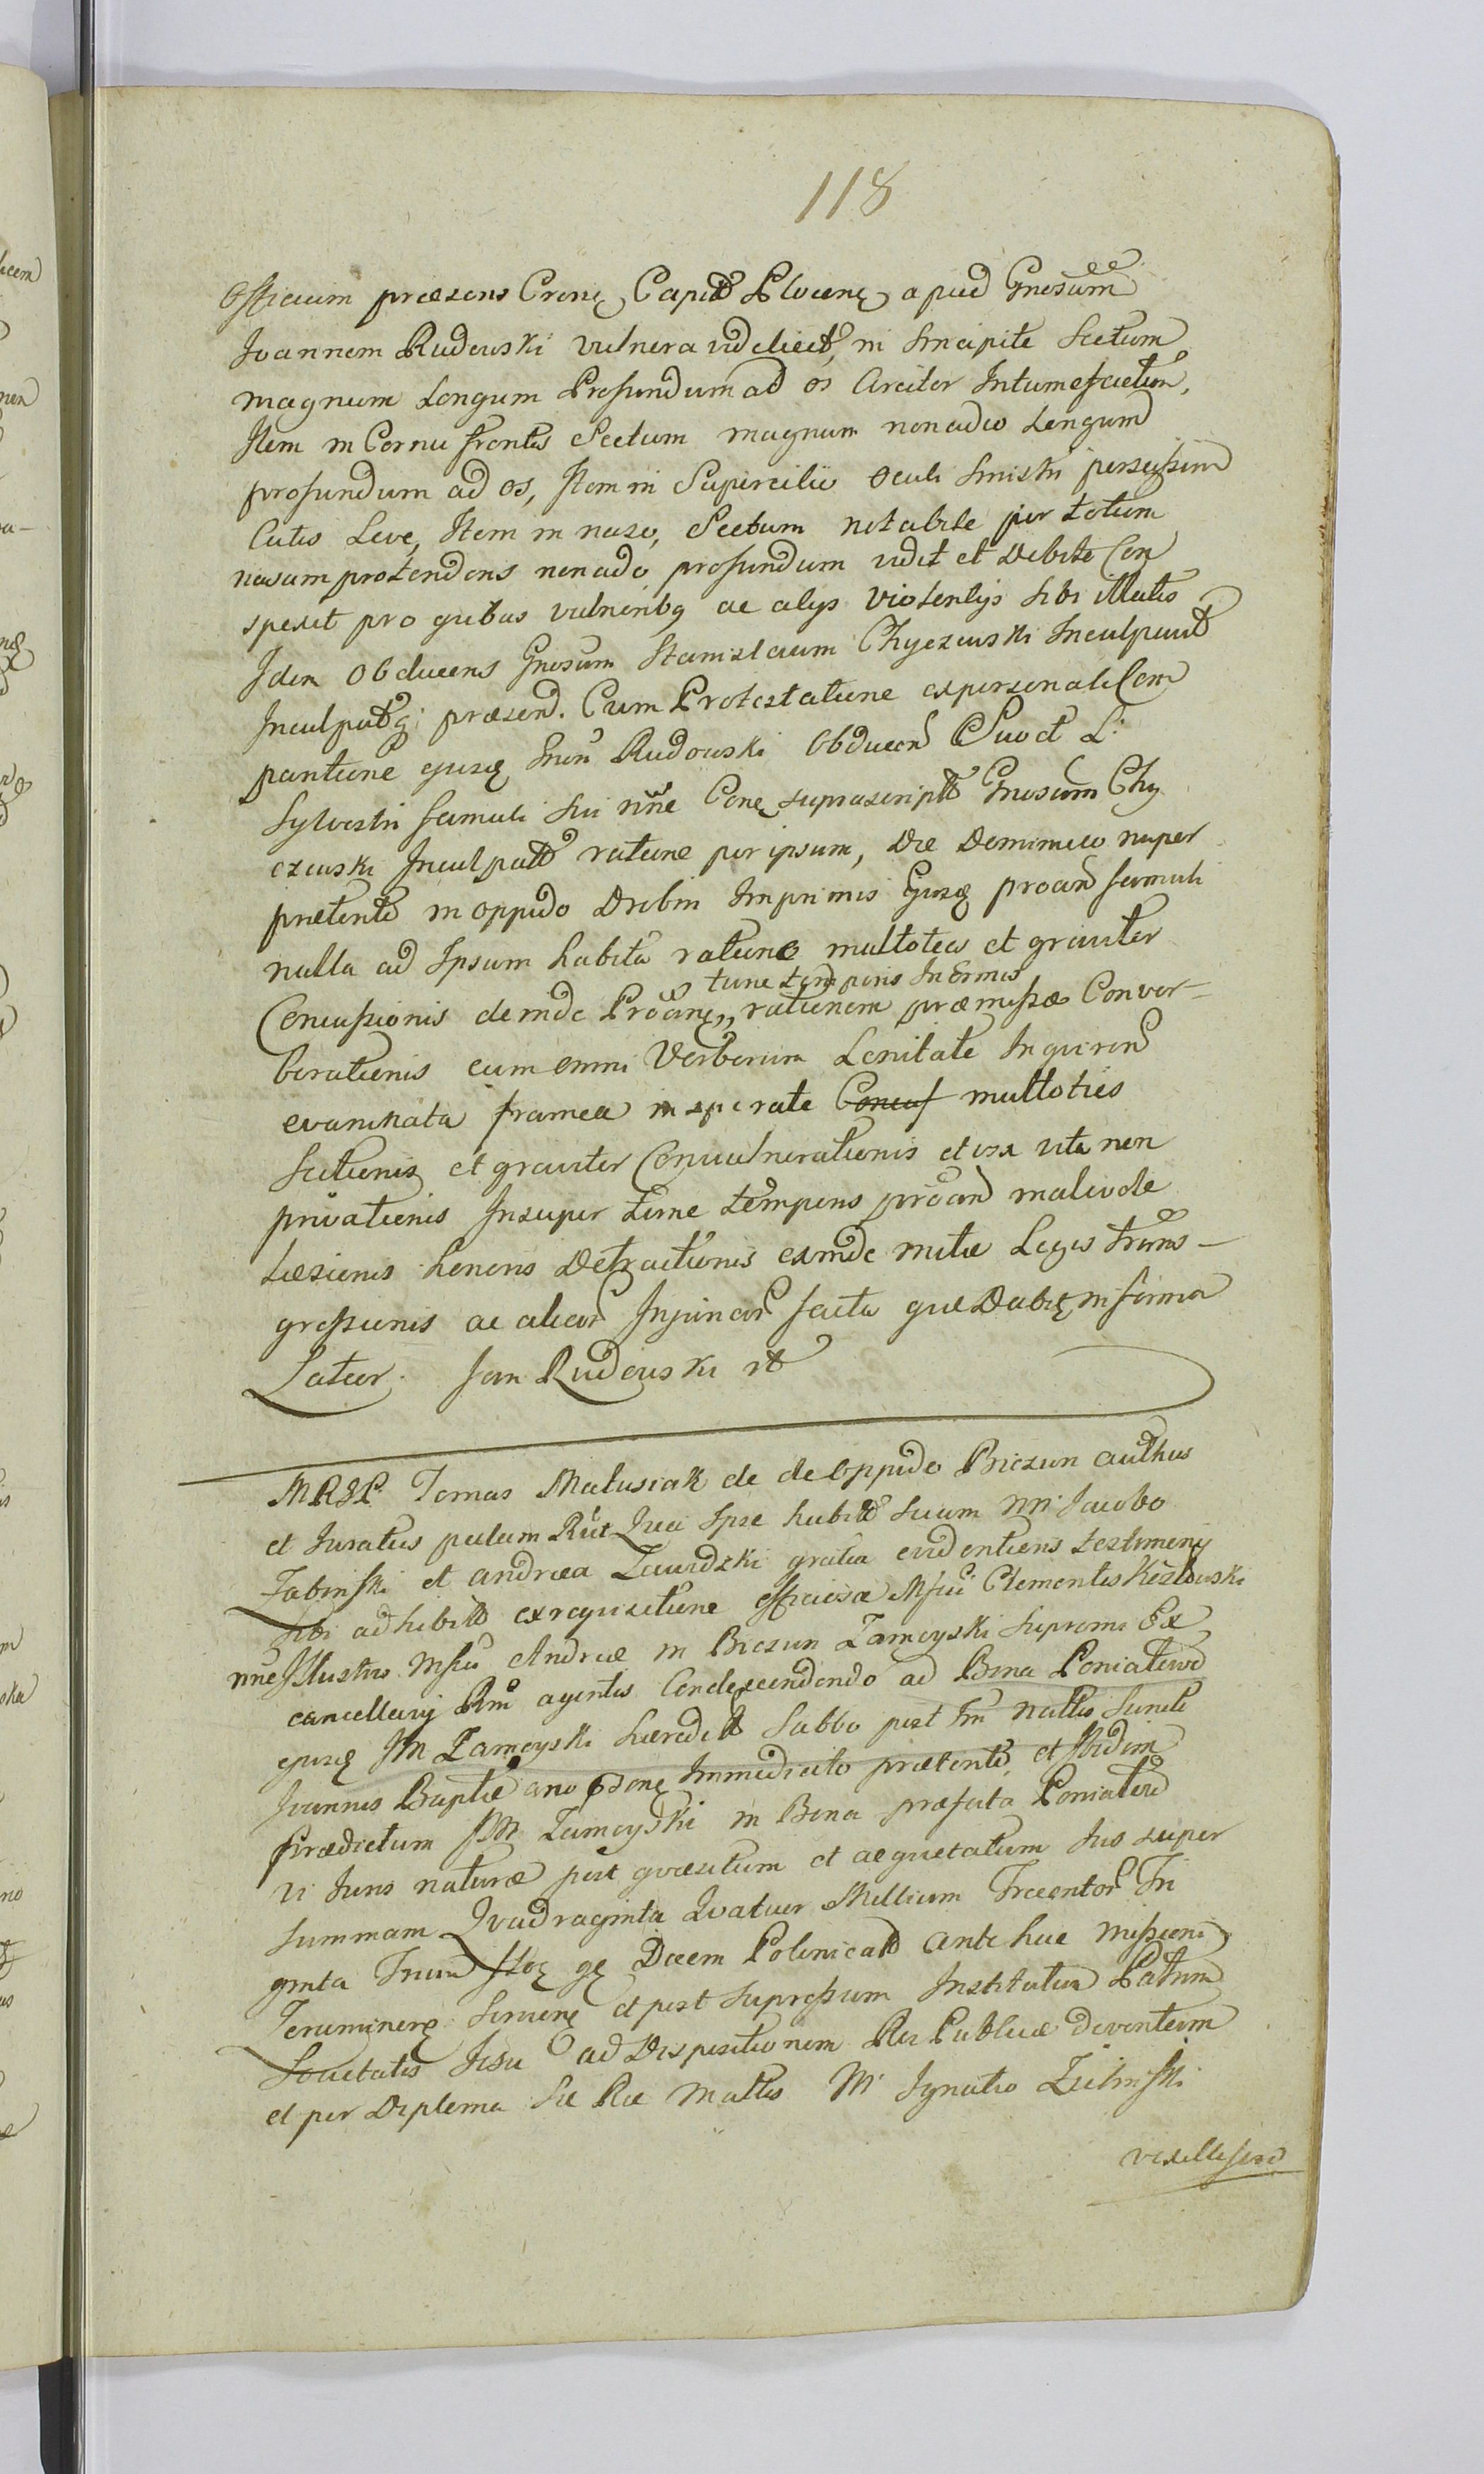 118
Officium præsens Crense Capitle Plocense apud Gnosum
Joannem Rudowski vulnera videlicet, in Sincipite Sectum
magnum Longum Profundum ad os Circiter Intumefactum,
Item in Cornu frontis Sectum magnum non adeo Longum
profundum ad os, Item in Supercilio Oculi Sinistri perscissum
Cutis Leve, Item in naso, Sectum notabile per totum
nasum protendens non adeo profundum vidit et Debite Con
spexit pro quibus vulneribq ac alys violentys sibi illatis
Idem Obducens Gnosum Stanislaum Chyczewski Inculpavit
Inculpatq; præsend. Cum Protestatione ex personali Com
partione ejusq Rudowski Obducen Suo et L:
Sylvestri famuli sui nne Cone suprascriptt Gnosum Chy
czewski Inculpatt ratione per ipsum, Die Dominico nuper
præterito in oppido Drobin Imprimis Ejusq procan famuli
nulla ad Ipsum habita ratione multoties et graviter
tunc temporis Inermis
Concussionis deinde Procanę,, rationem præmissæ Conver-
berationis cum omni Verborum Lenitate Inquiren
evaginata framea insperate Concus multoties
Sectionis et graviter Convulnerationis et vix vita non
privationis Insuper tunc temporis procan malivole
Læsionis honoris Detractionis exinde mitæ Legis trans-
gressionis ac alior Injuriar facta que Dabit in forma
Lator. Jan Rudowski
MRSP. Tomas Matusiak de de Oppido Biezun authus
et Juratus palam Rut Quia Ipse habitt Secum NN Jacobo
Zabinski et andrea Zawidzki gratia evidentioris testimony
sibi adhibitt ex requisitione officiosa Mfici Clementis Kozlowski
nne Illustris Mfici Andreæ in Biezun Zamoyski Supremi Ex
cancellary Rni agentis Condescendendo ad Bona Poniatowo
ejusq IM Zamoyski hæreditt Sabbo post fm nattis Sancti
Joannis Baptæ ano Immediate præterito, et Ibidem
Prædictum IM Zamoyski in Bona præfata Poniatowo
vi Juris naturæ post quæsitum et acquietatum Jus super
summam Quadraginta Quatuor Millium Trecentor Tri
ginta Trium floę gę Decem Polonicatt ante hac missioni
Societatis Jesu ad Dispositionem Rei Publicæ devontum
et per Diploma Sæ Ræ Mattis M Ignatio Zielinski
vexillifero